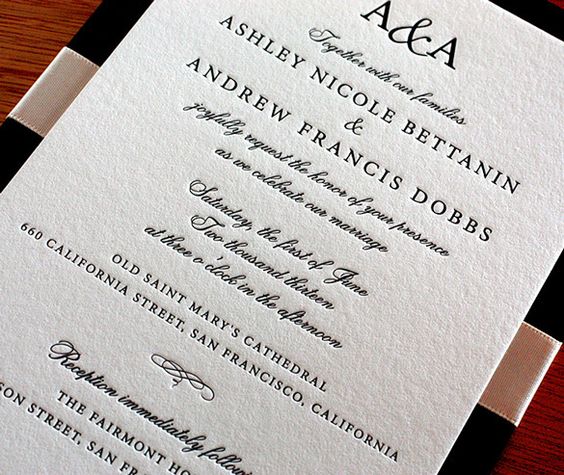 A&A
Together with our families
ASHLEY NICOLE BETTANIN
&
ANDREW FRANCIS DOBBS
joyfully request the honor of your presence
as we celebrate our marriage
Saturday, the first of June
Two thousand thirteen
at three o'clock in the afternoon
OLD SAINT MARY'S CATHEDRAL
660 CALIFORNIA STREET, SAN FRANCISCO, CALIFORNIA
Reception immediately follow
THE FAIRMONT HO
SON STREET, SAN FRAN